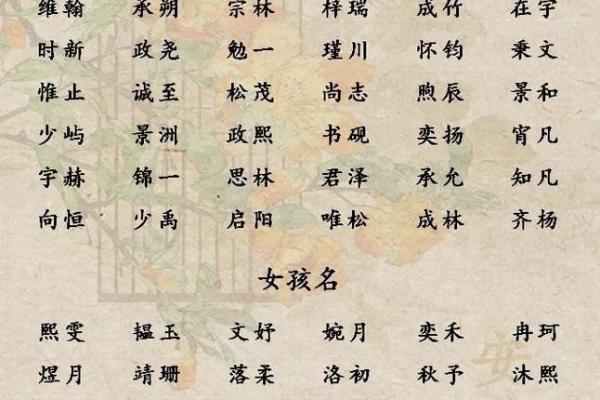 维翰 承朔 宗林 梓瑞 成竹 在宇
时新 政尧 勉一 瑾川 怀钧 秉文
惟止 诚至 松茂 尚志 煦辰 景和
少屿 景洲 政熙 书砚 奕扬 宵凡
宇赫 锦一 思林 君泽 承允 知凡
向恒 少禹 启阳 唯松 成林 齐杨
女孩名
熙雯 韫玉 文妤 婉月 奕禾 冉珂
煜月 靖珊 落柔 洛初 秋予 沐熙
安